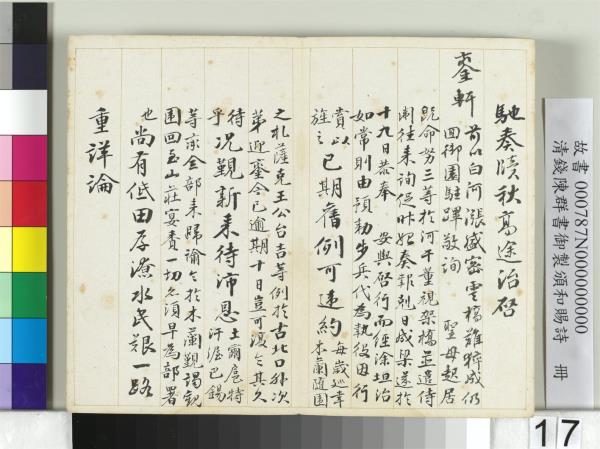 馳奏牘秋高途治啓
鑾軒 前以白河漲盛密雲橋難猝成仍
回御園駐蹕敬詢 聖母起居
既命努三等於河干董視架橋並遣侍
衛往來詢促昨超奏報剋日成梁遂於
十九日恭奉 安輿啓行而經涂坦治
如常則由預勅步兵代為執役因行
賞以
旌之 已期舊例可違約 每歲巡幸
木蘭隨圍
之札薩克王公台吉等例於古北口外次
第迎鑾今已逾期十日豈可復令其久
待
乎 況覲新來待沛恩 土爾扈特
汗渥巴錫
等率全部來歸諭令於木蘭覲謁觀
圍回至山莊宴賚一切必須早為部署
也 尚有低田存潦水民艱一路
重詳論
故書 000787N000000000
清錢陳群書御製頒和賜詩 冊
17